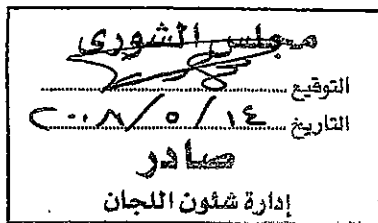 مجلس الشورى
التوقيع
التاريخ ١٤ / ٥ / ٢٠٠٨
صادر
إدارة شئون اللجان